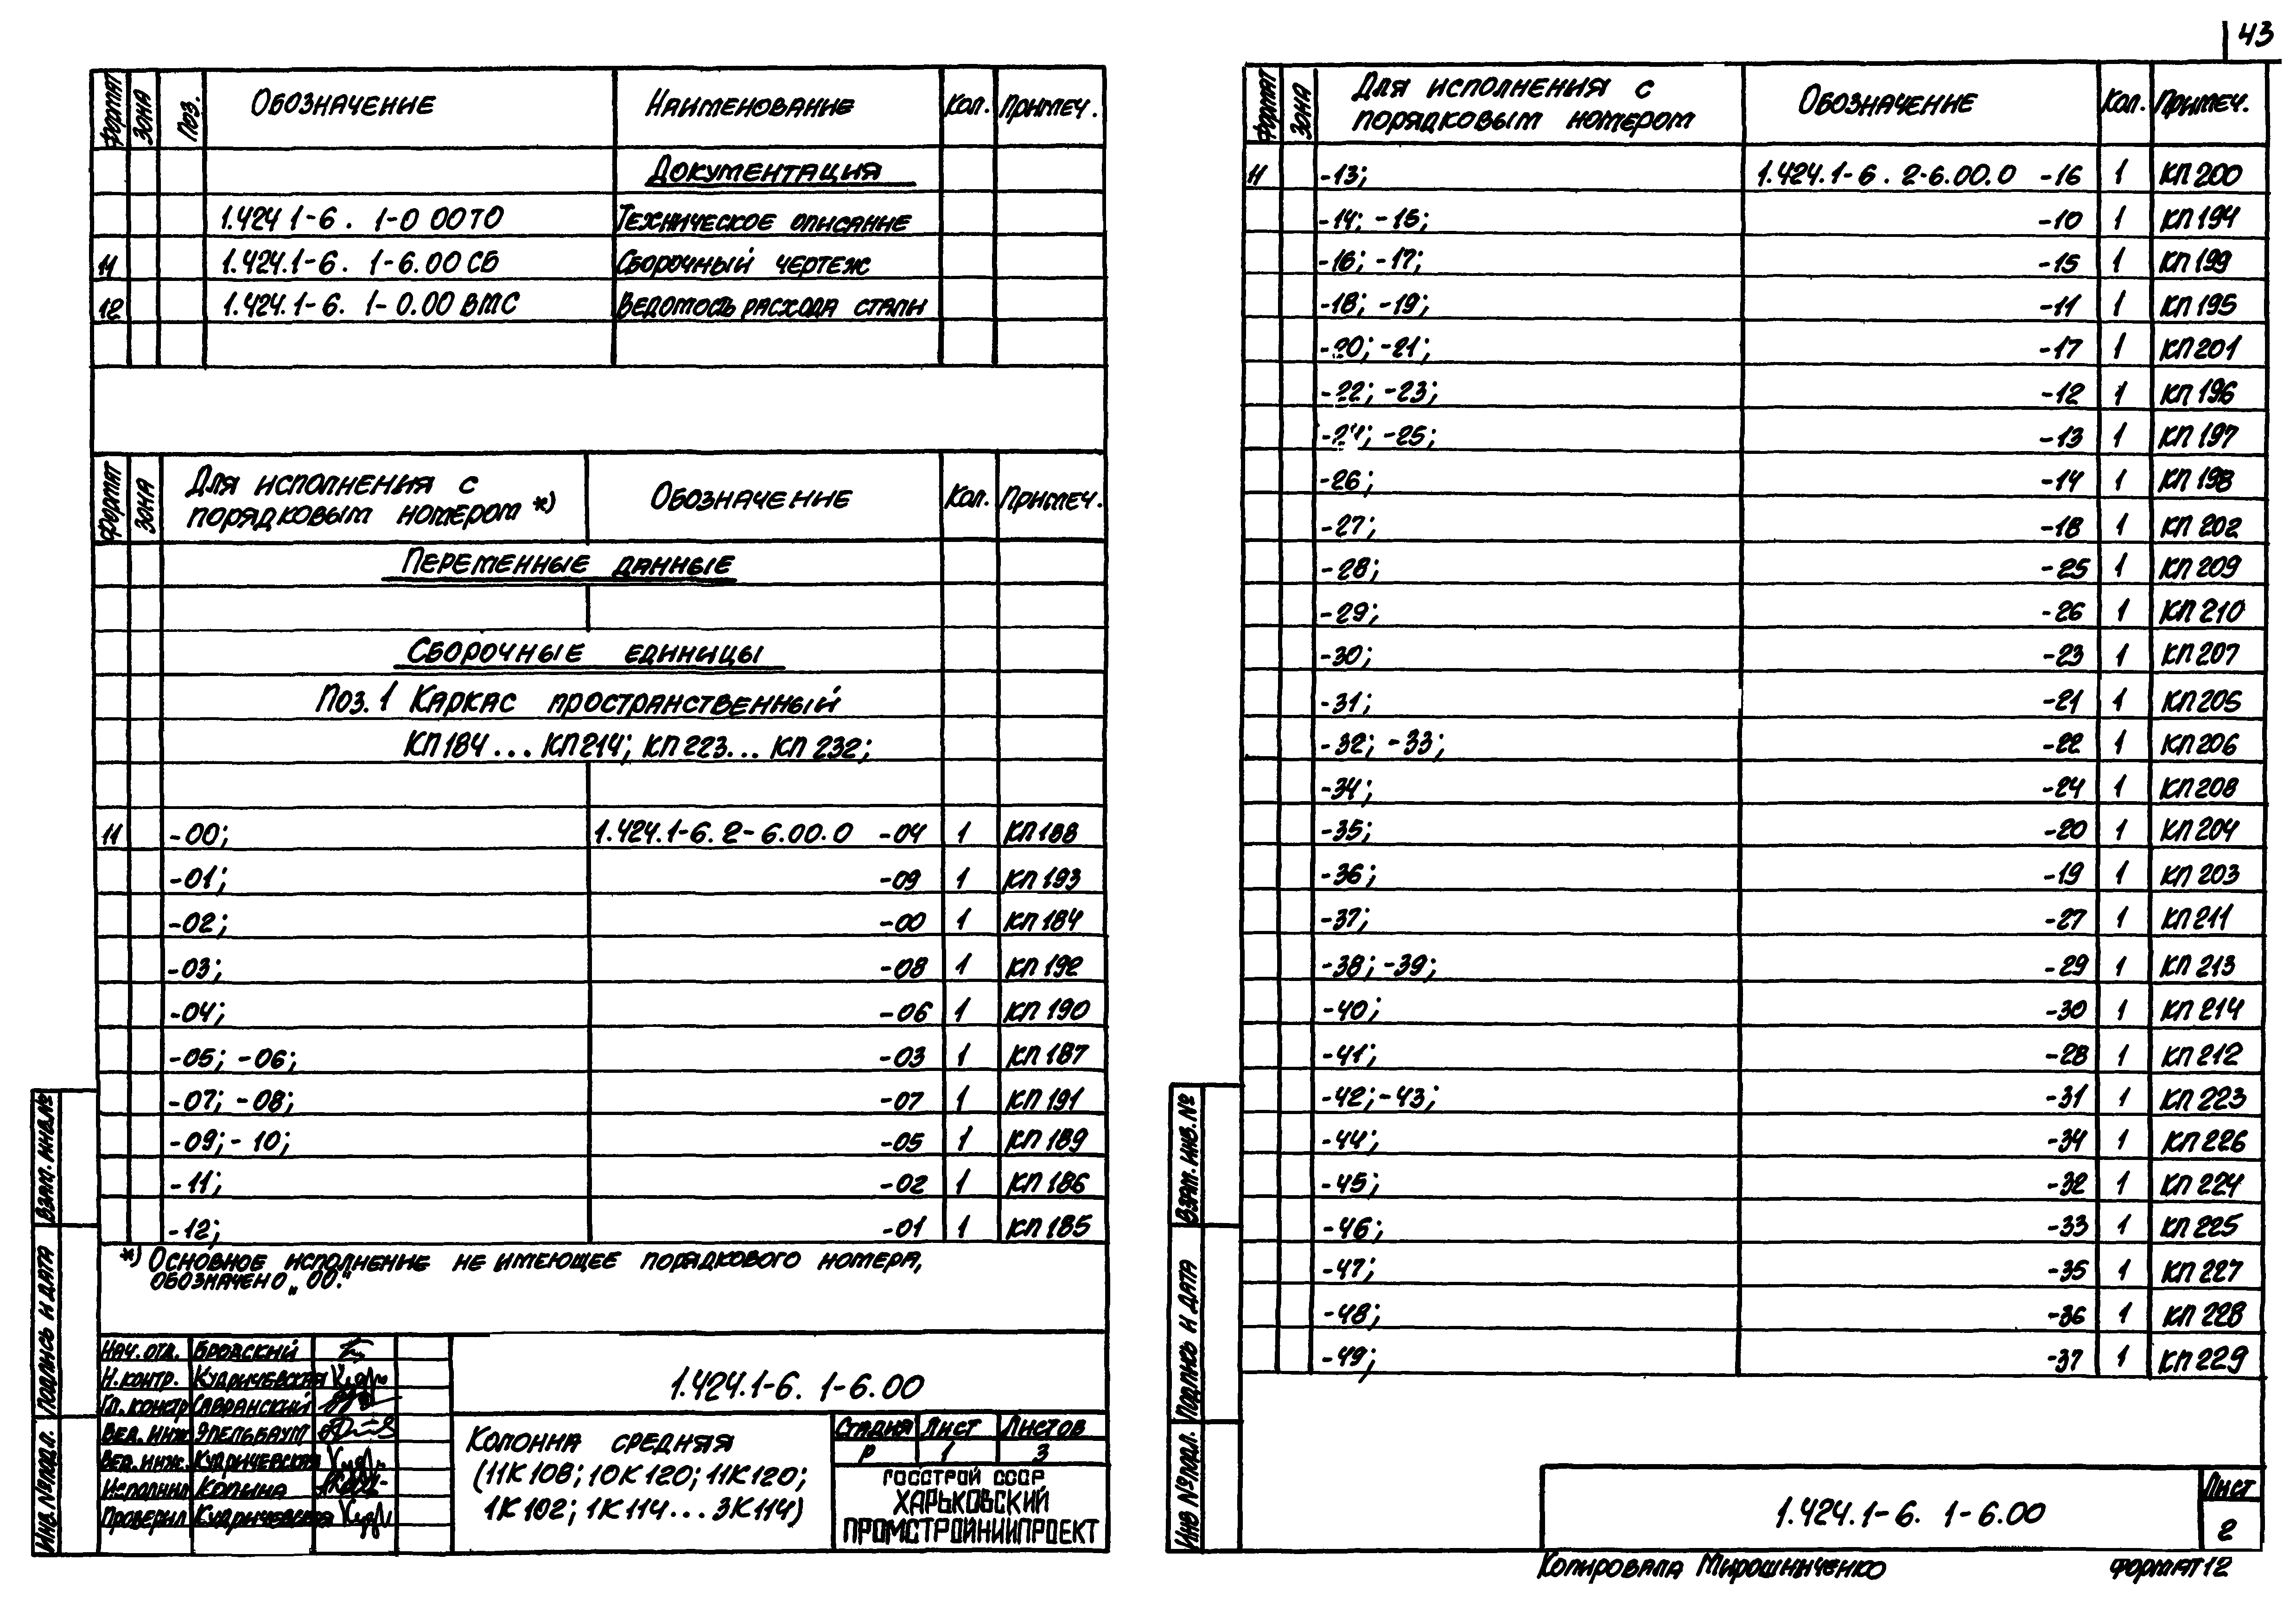 43
Формат Зона Поз. Обозначение Наименование Кол. Примеч.
Документация
1.424 1-6. 1-0 00ТО Техническое описание
11 1.424.1-6. 1-6.00 СБ Сборочный чертеж
12 1.424.1-6. 1-0.00 ВМС Ведомость расхода стали
Формат Зона Для исполнения с порядковым номером *) Обозначение Кол. Примеч.
Переменные данные
Сборочные единицы
Поз. 1 Каркас пространственный
КП184... КП214; КП223... КП 232;
11 -00; 1.424.1-6.2-6.00.0 -04 1 КП188
-01; -09 1 КП193
-02; -00 1 КП184
-03; -08 1 КП192
-04; -06 1 КП190
-05; -06; -03 1 КП187
-07; -08; -07 1 КП191
-09; -10; -05 1 КП189
-11; -02 1 КП186
-12; -01 1 КП185
*) Основное исполнение не имеющее порядкового номера,
обозначено „00."
Взам. инв.№
Подпись и дата
Инв.№подл.
Нач. отд. Бродский
Н.контр. Кудричевская
Гл. констр Савранский
Вед. инж Эпельбаум
Вед. инж. Кудричевская
Исполнил Копына
Проверил Кудричевская
1.424.1-6. 1-6.00
Колонна средняя
(11К108; 10К120; 11К120;
1К102; 1К114...3К114)
Стадия Лист Листов
Р 1 3
Госстрой СССР
ХАРЬКОВСКИЙ
ПРОМСТРОЙНИИПРОЕКТ
Формат Зона Для исполнения с порядковым номером Обозначение Кол. Примеч.
11 -13; 1.424.1-6. 2-6.00.0 -16 1 КП200
-14; -15; -10 1 КП194
-16; -17; -15 1 КП199
-18; -19; -11 1 КП195
-20; -21; -17 1 КП201
-22; -23; -12 1 КП196
-24; -25; -13 1 КП197
-26; -14 1 КП198
-27; -18 1 КП202
-28; -25 1 КП209
-29; -26 1 КП210
-30; -23 1 КП207
-31; -21 1 КП205
-32; -33; -22 1 КП206
-34; -24 1 КП208
-35; -20 1 КП204
-36; -19 1 КП203
-37; -27 1 КП211
-38; -39; -29 1 КП213
-40; -30 1 КП214
-41; -28 1 КП212
-42; -43; -31 1 КП223
-44; -34 1 КП226
-45; -32 1 КП224
-46; -33 1 КП225
-47; -35 1 КП227
-48; -36 1 КП228
-49; -37 1 КП229
Взам. инв.№
Подпись и дата
Инв №подл.
1.424.1-6. 1-6.00
Лист
2
Копировала Мирошниченко Формат12